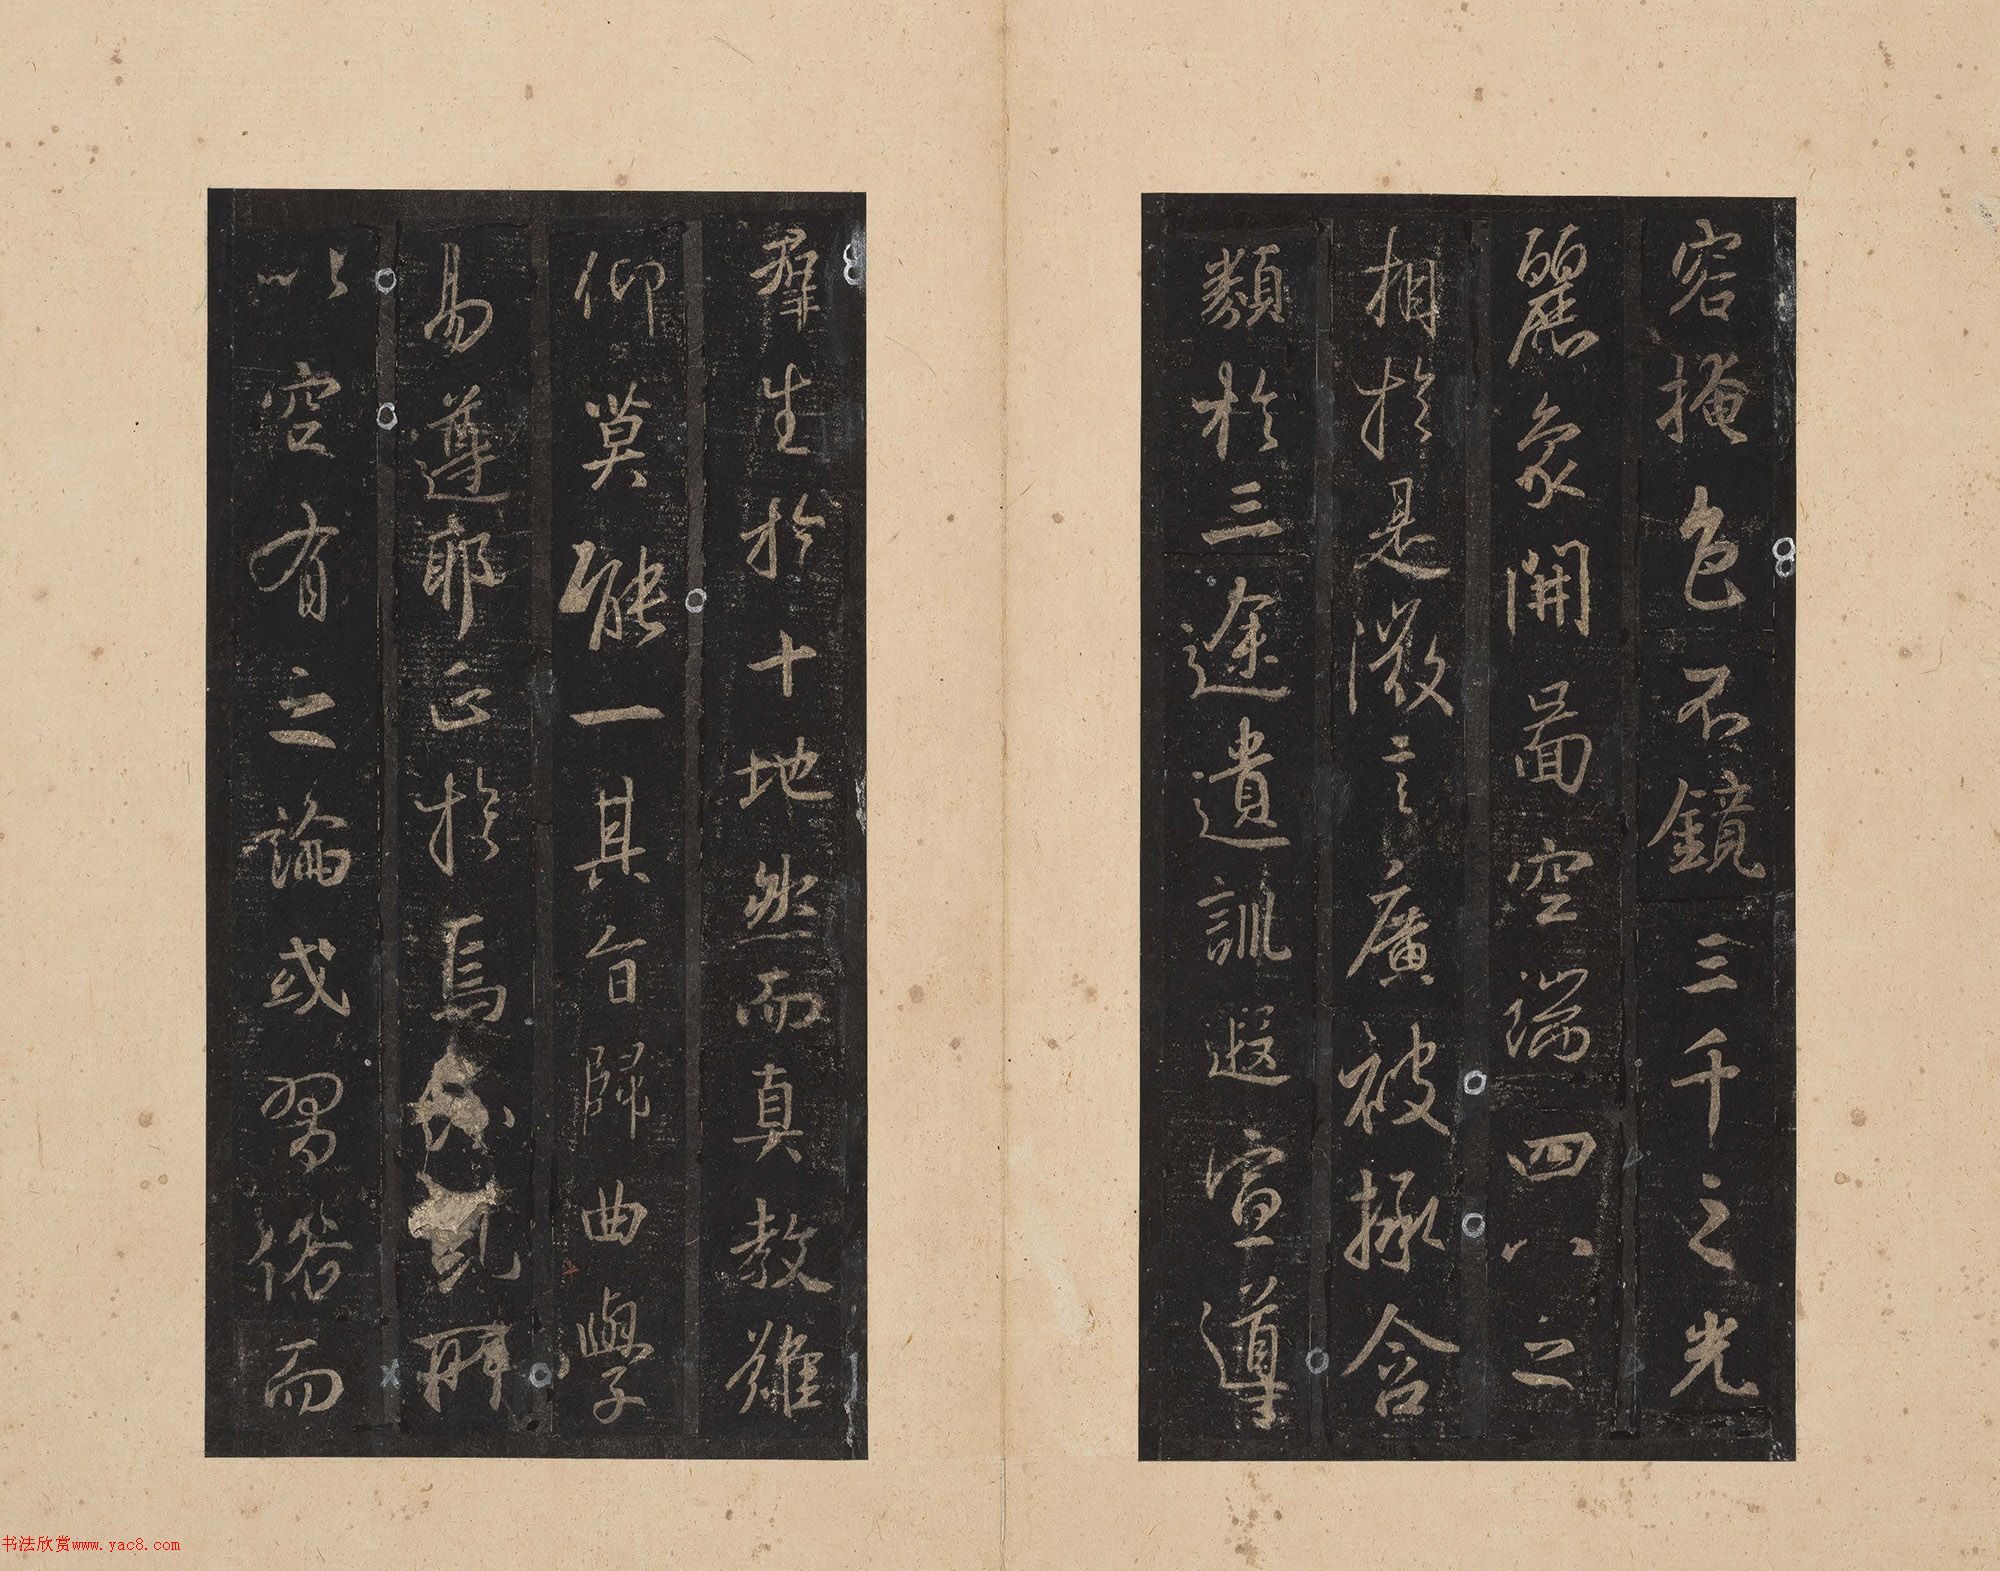 容掩色不鏡三千之光
麗象開啚空端四八之
相於是微言廣被拯含
類於三途遺訓遐宣導
群生於十地然而真教難
仰莫能一其旨歸曲學
易遵耶正於焉紛糺所
以空有之論或習俗而
书法欣赏www.yac8.com